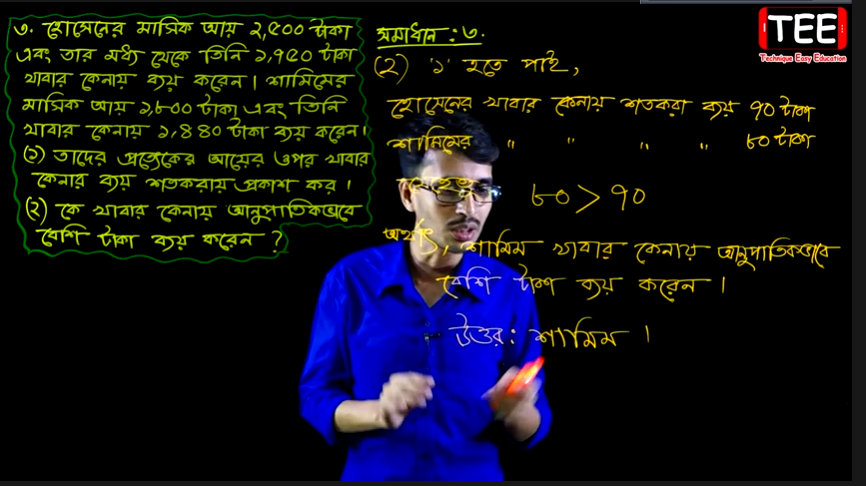 ৩. হোসেনের মাসিক আয় ২,৫০০ টাকা
এবং তার মধ্য থেকে তিনি ১,৭৫০ টাকা
খাবার কেনায় ব্যয় করেন। শামিমের
মাসিক আয় ১,৮০০ টাকা এবং তিনি
খাবার কেনায় ১,৪৪০ টাকা ব্যয় করেন।
(১) তাদের প্রত্যেকের আয়ের ওপর খাবার
কেনার ব্যয় শতকরায় প্রকাশ কর।
(২) কে খাবার কেনায় আনুপাতিকভাবে
বেশি টাকা ব্যয় করেন?
সমাধান: ৩.
(২) '১' হতে পাই,
হোসেনের খাবার কেনায় শতকরা ব্যয় ৭০ টাকা
শামিমের " " " " ৮০ টাকা
যেহেতু ৮০ > ৭০
অর্থাৎ, শামিম খাবার কেনায় আনুপাতিকভাবে
বেশি টাকা ব্যয় করেন।
উত্তর: শামিম।
TEE
Technique Easy Education